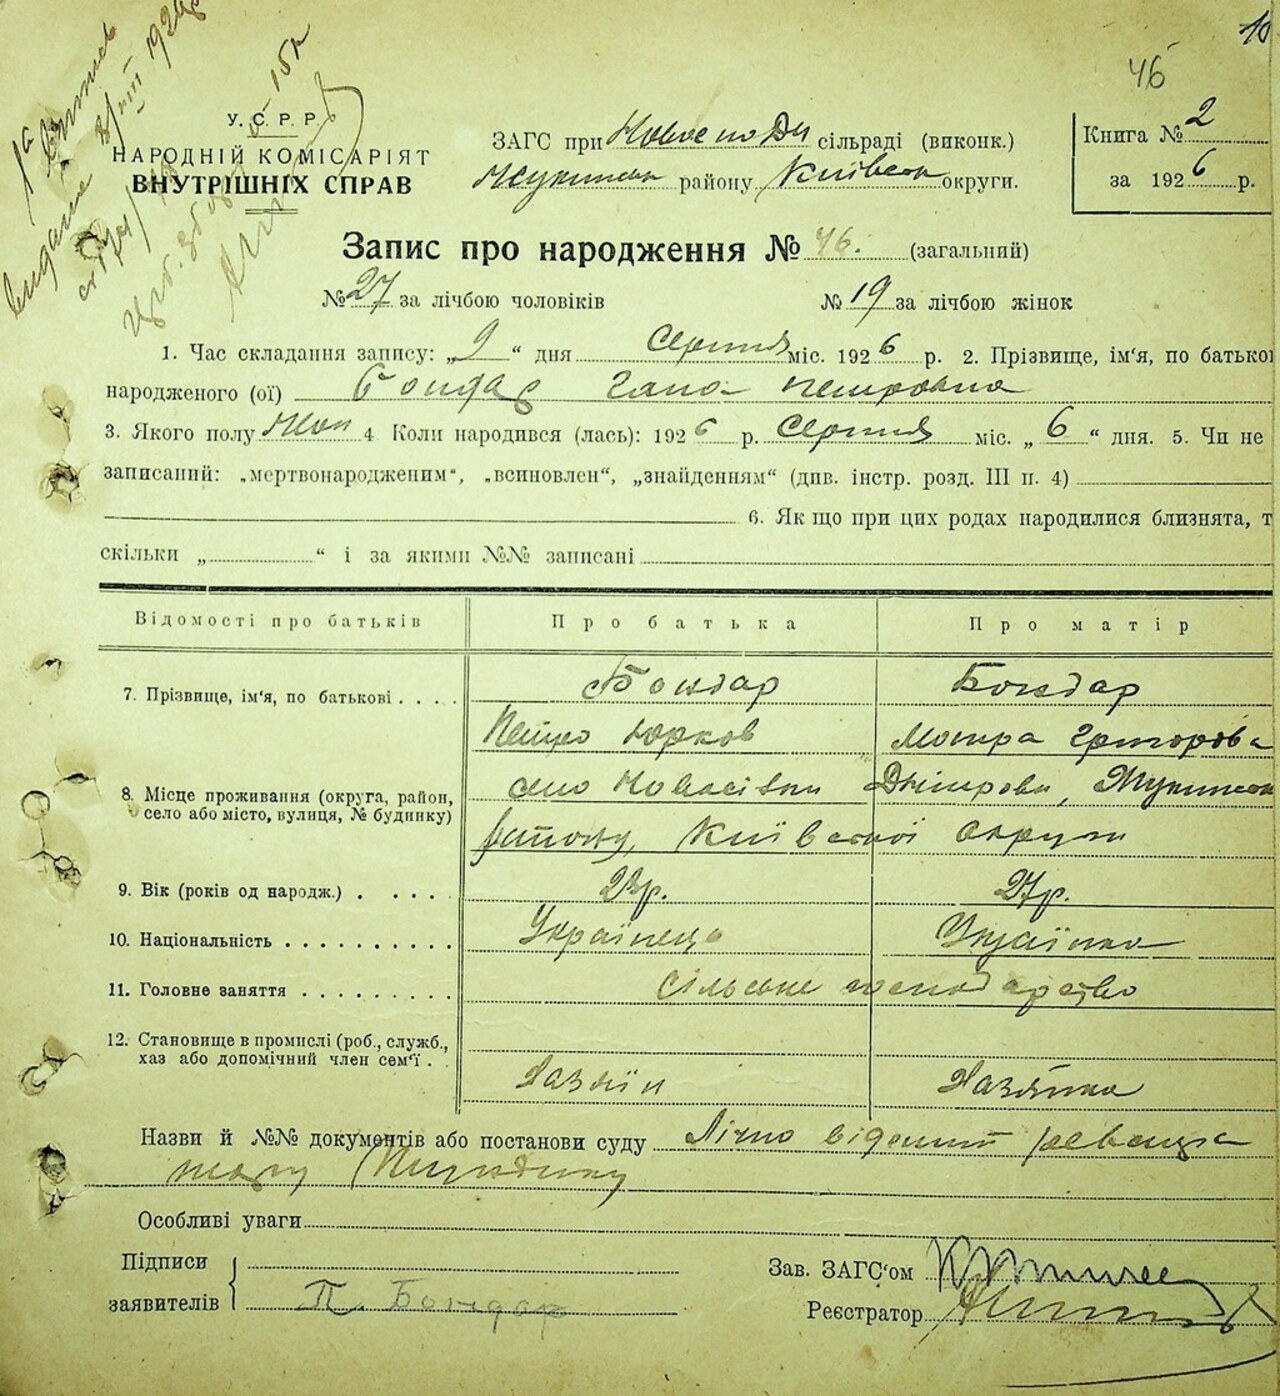 10
46
У. С. Р. Р.
НАРОДНІЙ КОМІСАРІЯТ
ВНУТРІШНІХ СПРАВ
ЗАГС при сільраді (виконк.)
району Київськ округи.
Книга № 2
за 1926 р.
Запис про народження № 46. (загальний)
№ 27 за лічбою чоловіків № 19 за лічбою жінок
1. Час складання запису: „9“ дня Серпня міс. 1926 р. 2. Прізвище, ім‘я, по батько
народженого (ої) Бондар Гана Петровна
3. Якого полу Жон 4 Коли народився (лась): 1926 р. Серпня міс. „6“ дня. 5. Чи не
записаний: „мертвонародженим“, „всиновлен“, „знайденням“ (див. інстр. розд. III п. 4)
6. Як що при цих родах народилися близнята, т
скільки „ “ і за якими №№ записані
Відомості про батьків Про батька Про матір
7. Прізвище, ім‘я, по батькові Бондар Бондар
Петро Юрков Мотра Григорова
8. Місце проживання (округа, район,
село або місто, вулиця, № будинку)
село Новосілки Дніпрови,
району, Київської округи
9. Вік (років од народж.) 23р. 27р.
10. Національність Українець Українка
11. Головне заняття сільське господарство
12. Становище в промислі (роб., служб.,
хаз або допомічний член сем‘ї
Хазяїн Хазяйка
Назви й №№ документів або постанови суду Лічно відомий
Особливі уваги
Підписи
заявителів
П. Бондар
Зав. ЗАГС‘ом
Реєстратор